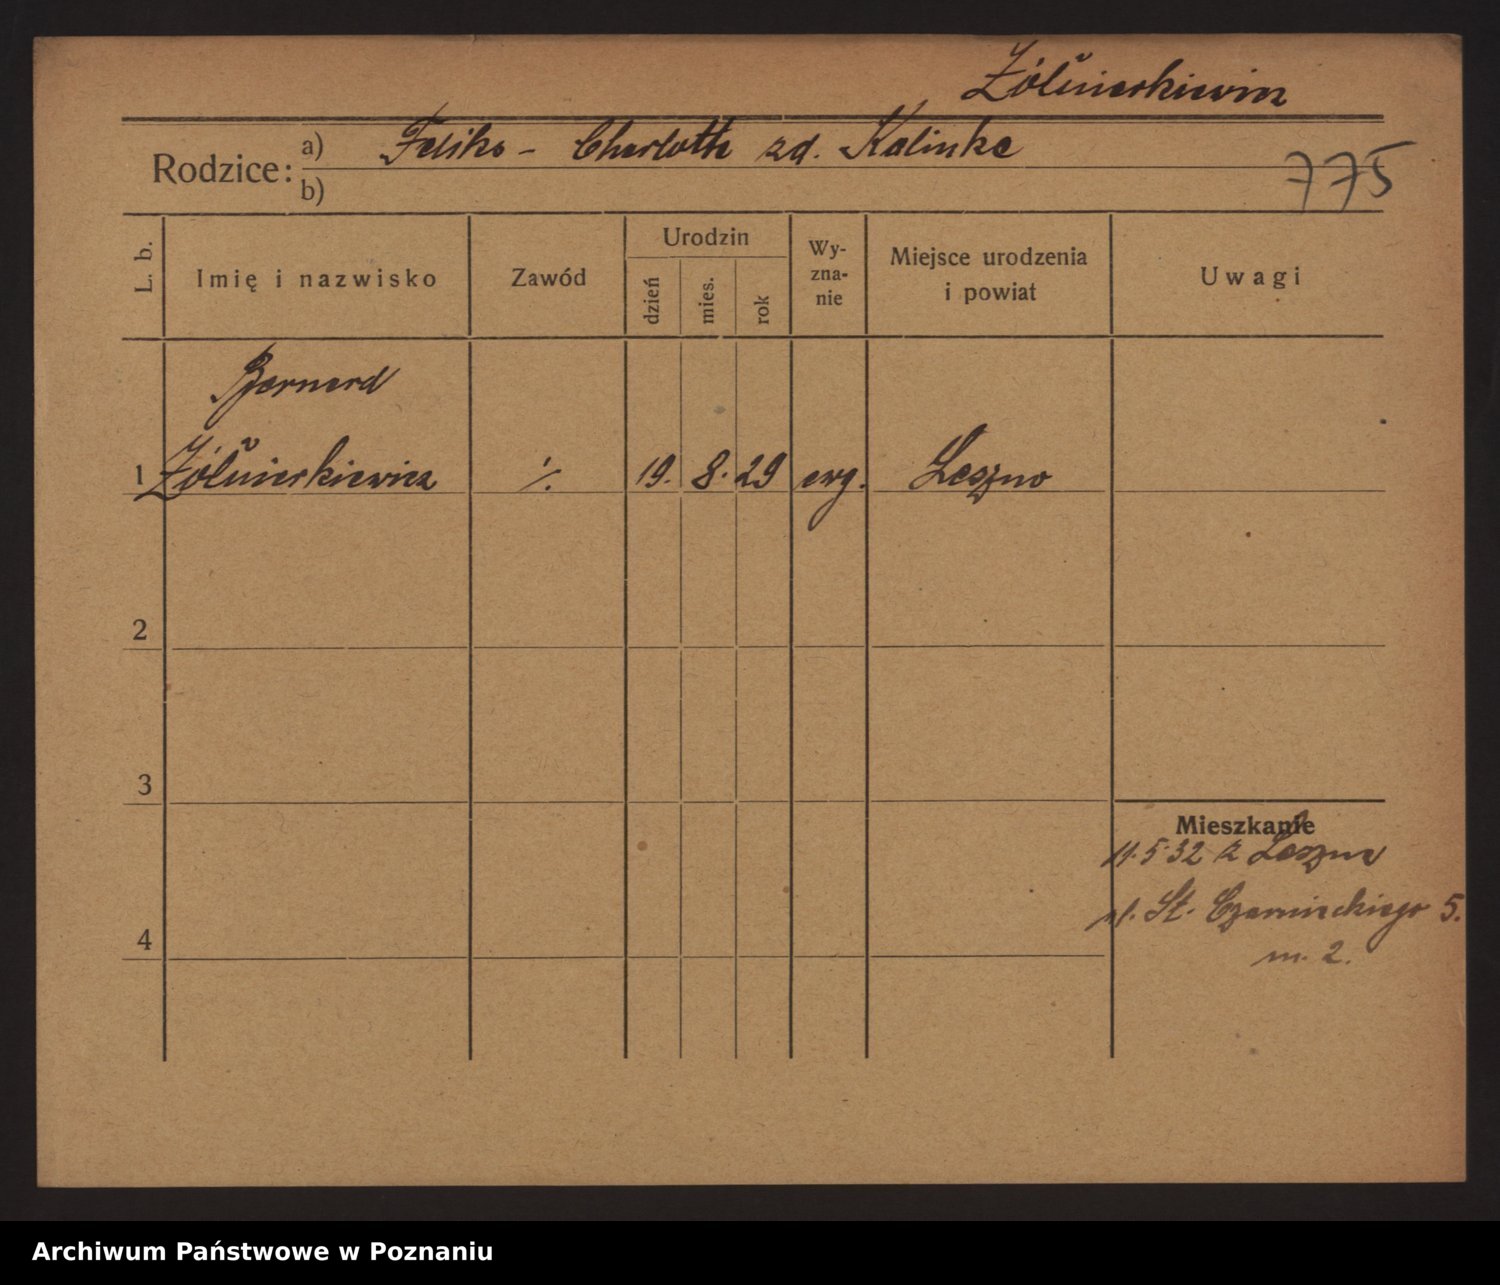 Żółnierkiewicz
Rodzice: a) Feliks - Charlotta zd. Kalinke
b)
775
L. b.
Imię i nazwisko
Zawód
Urodzin
dzień
mies.
rok
Wy-
zna-
nie
Miejsce urodzenia
i powiat
Uwagi
Bernard
1 Żółnierkiewicz ./. 19. 8. 29 ewg. Leszno
2
3
Mieszkanie
11.5.32 z Leszna
pl. St. Czarnieckiego 5.
4
m. 2.
Archiwum Państwowe w Poznaniu